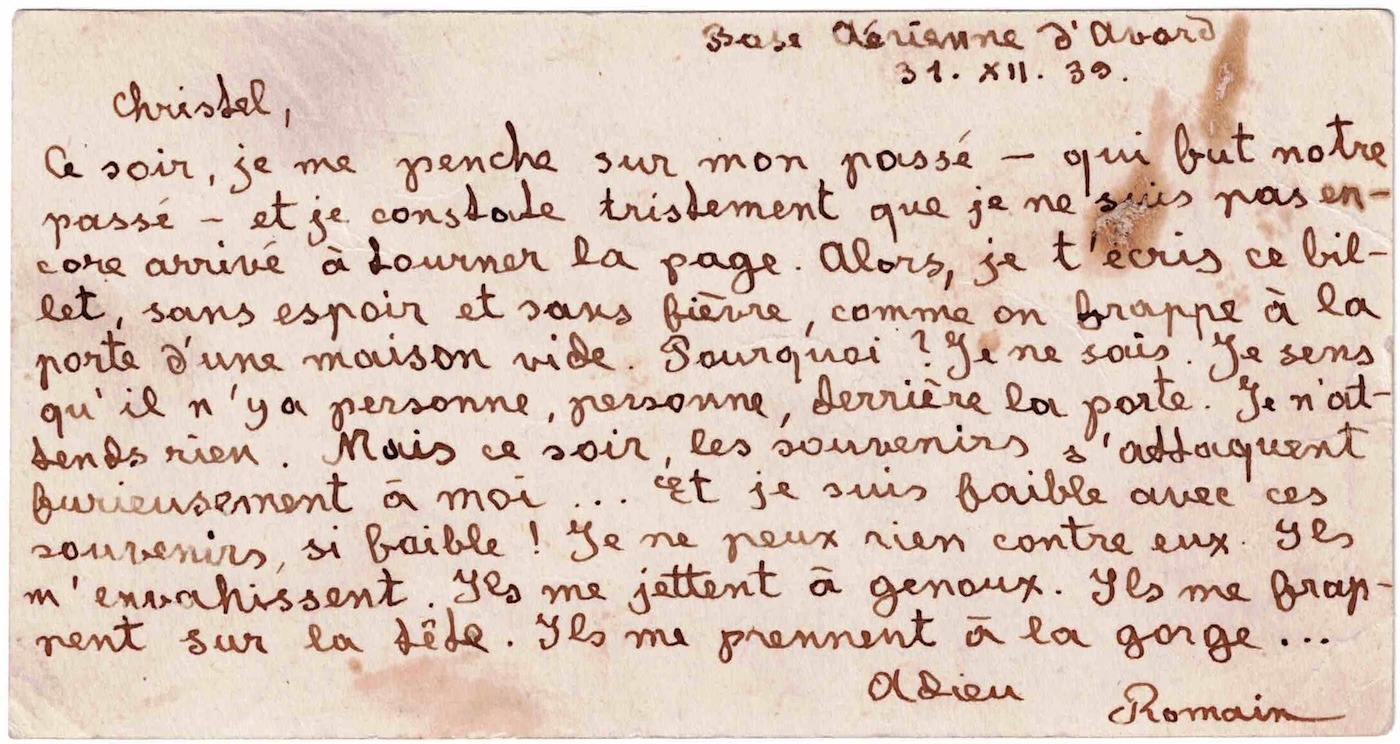 Base Aérienne d'Avord
31. XII. 39.
Christel,
Ce soir, je me penche sur mon passé – qui fut notre
passé – et je constate tristement que je ne suis pas en-
core arrivé à tourner la page. Alors, je t'écris ce bil-
let, sans espoir et sans fièvre, comme on frappe à la
porte d'une maison vide. Pourquoi ? Je ne sais. Je sens
qu'il n'y a personne, personne, derrière la porte. Je n'at-
tends rien. Mais ce soir, les souvenirs s'attaquent
furieusement à moi ... Et je suis faible avec ces
souvenirs, si faible ! Je ne peux rien contre eux. Ils
m'envahissent. Ils me jettent à genoux. Ils me frap-
pent sur la tête. Ils me prennent à la gorge ...
Adieu
Romain